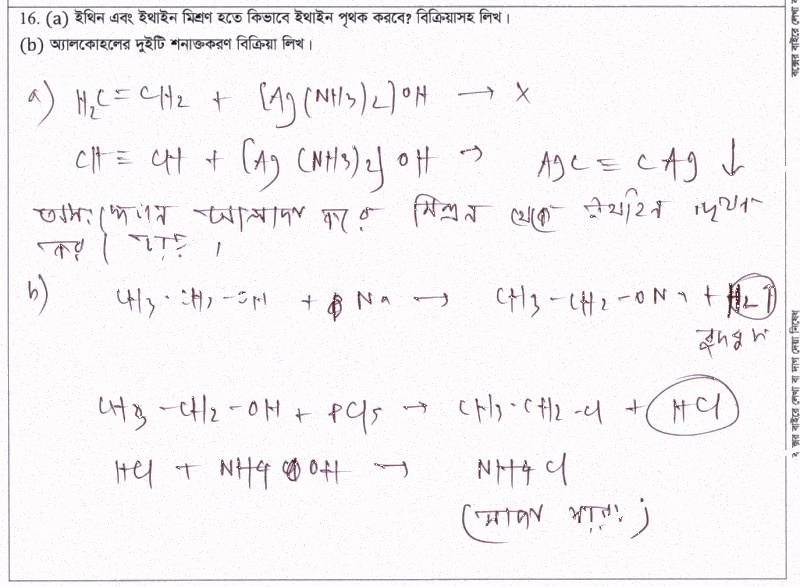 16. (a) ইথিন এবং ইথাইন মিশ্রণ হতে কিভাবে ইথাইন পৃথক করবে? বিক্রিয়াসহ লিখ।
(b) অ্যালকোহলের দুইটি শনাক্তকরণ বিক্রিয়া লিখ।
a) H2C=CH2 + [Ag(NH3)2]OH → X
CH≡CH + [Ag(NH3)2]OH → AgC≡CAg ↓
আলাদা করে মিশ্রন থেকে ইথাইন পৃথক
করা যায়।
b) CH3-CH2-OH + Na → CH3-CH2-ONa + H2↑
বুদবুদ
CH3-CH2-OH + PCl5 → CH3-CH2-Cl + HCl
HCl + NH4OH → NH4Cl
(সাদা ধোঁয়া)